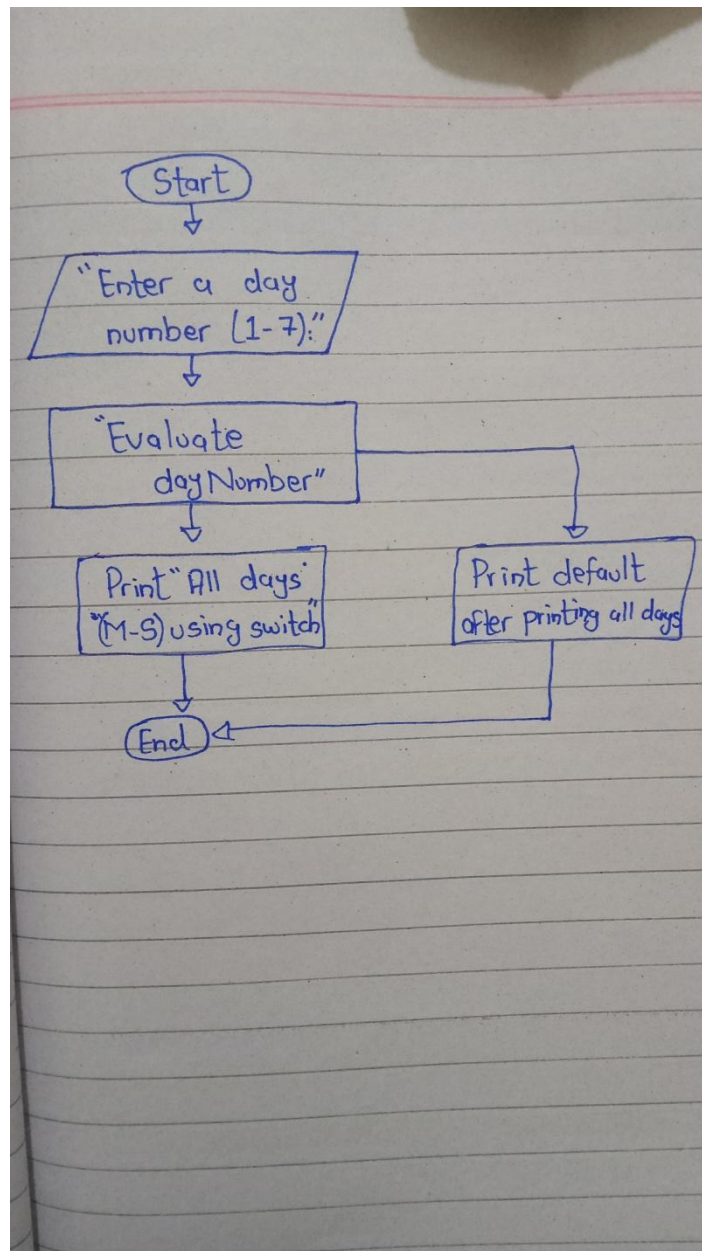 Start
"Enter a day
number (1-7):"
"Evaluate
dayNumber"
Print "All days"
"(M-S) using switch"
Print default
after printing all days
End